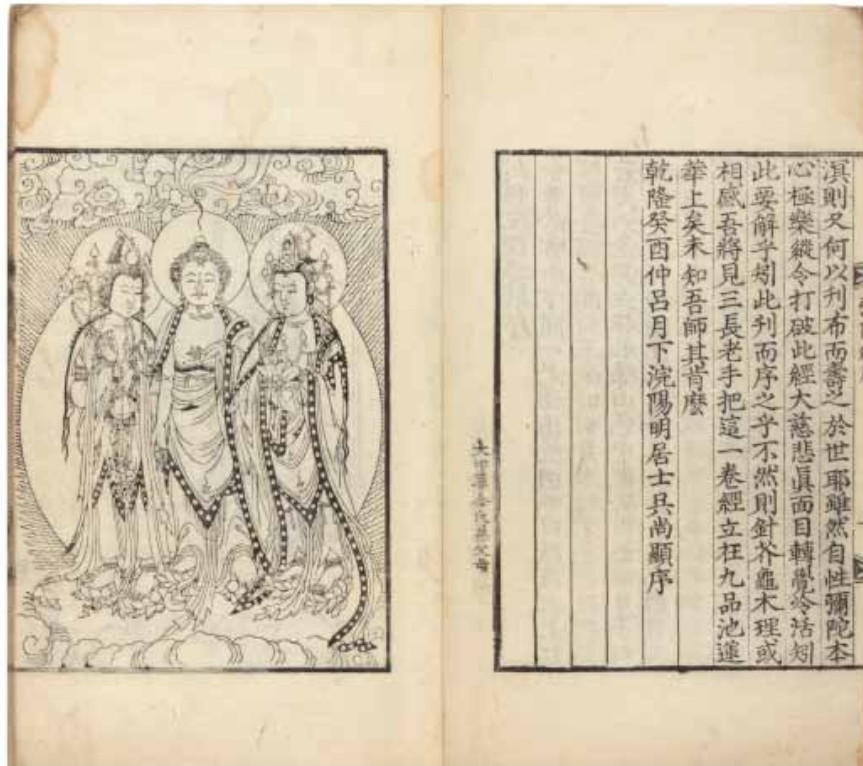 溟則又何以刊布而壽之於世耶雖然自性彌陀本
心極樂縱令打破此經大慈悲眞面目轉覺冷活矧
此要解乎矧此刊而序之乎不然則針芥龜木理或
相感吾將見三長老手把這一卷經立在九品池蓮
華上矣未知吾師其肯麽
乾隆癸酉仲呂月下浣陽明居士具尙顯序
氏 父母